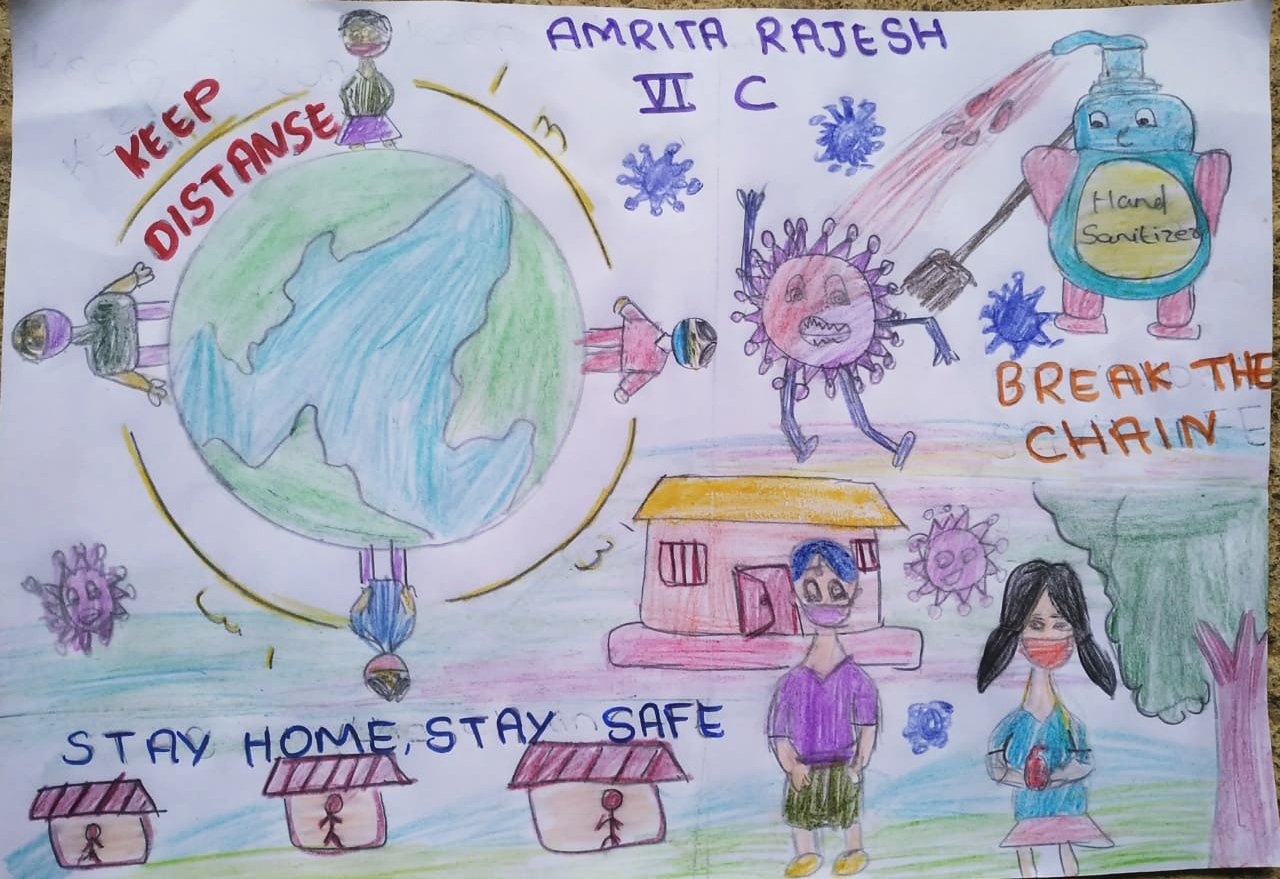 AMRITA RAJESH
VI C
KEEP
DISTANSE
Hand
Sanitizer
BREAK THE
CHAIN
STAY HOME, STAY SAFE